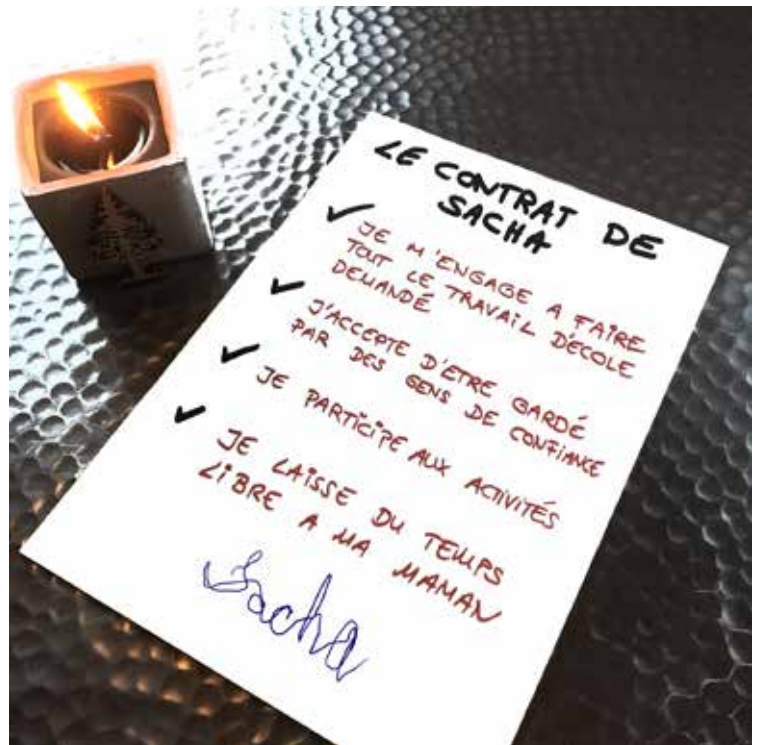 LE CONTRAT DE
SACHA
JE M'ENGAGE A FAIRE
TOUT LE TRAVAIL D'ÉCOLE
DEMANDÉ
J'ACCEPTE D'ETRE GARDÉ
PAR DES GENS DE CONFIANCE
JE PARTICIPE AUX ACTIVITÉS
JE LAISSE DU TEMPS
LIBRE A MA MAMAN
Sacha